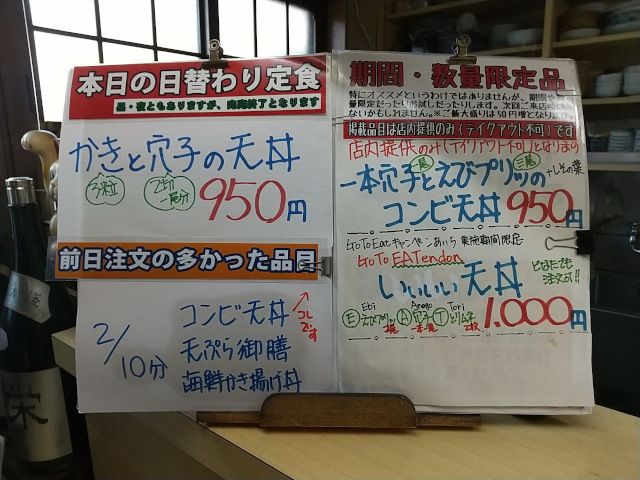 本日の日替わり定食
昼・夜ともありますが、完売終了となります
かきと穴子の天丼
3粒
2切
一尾分
950円
前日注文の多かった品目
2/10分
コンビ天丼
コレです
天ぷら御膳
海鮮かき揚げ丼
期間・数量限定品
特にオススメというわけではありませんが、期間や数
量限定だったりお試しだったりします。次回ご来店時は
ないかもしれません。※ご飯大盛りは50円増となります
掲載品目は店内提供のみ(テイクアウト不可)です
店内提供のみ(テイクアウト不可)となります
一本穴子とえびプリッの
+しその葉
コンビ天丼 950円
GoToEatキャンペーンあいち 実施期間限定
GoTo EATendon
いいいい天丼
どなたでも
注文可!!
Ebi Anago Tori
Ⓔえびプリッ Ⓐ穴子 Ⓣとりムネ
1.000円